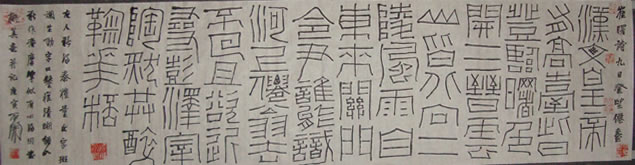 崔曙詩九日登望仙臺
漢文皇帝
有高臺此日
登臨曙色
開三晉雲
山皆北向二
陵風雨自
東來關門
令尹誰能識
河上仙翁去
不回且欲近
尋彭澤宰
陶然共醉
菊花杯